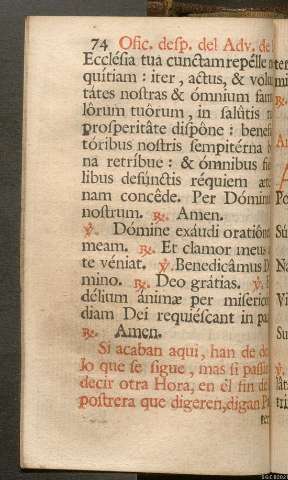 74 Ofic. deſp. del Adv. de
Eccléſia tua cunctam repélle n
quitiam: iter, actus, & volu
tátes noſtras & ómnium fam
lôrum tuôrum, in ſalûtis
proſperitâte diſpône: benef
tóribus noſtris ſempitérna
na retríbue: & ómnibus fi
libus defúnctis réquiem æt
nam concêde. Per Dómin
noſtrum. ℟. Amen.
℣. Dómine exáudi oratiôn
meam. ℟. Et clamor meus
te véniat. ℣. Benedicâmus D
mino. ℟. Deo grátias. ℣.
délium ánimæ per miſerior
diam Dei requiéſcant in pa
℟. Amen.
Si acaban aqui, han de de
lo que ſe ſigue, mas ſi paſſa
decir otra Hora, en el fin de
poſtrera que digeren, digan P
ter